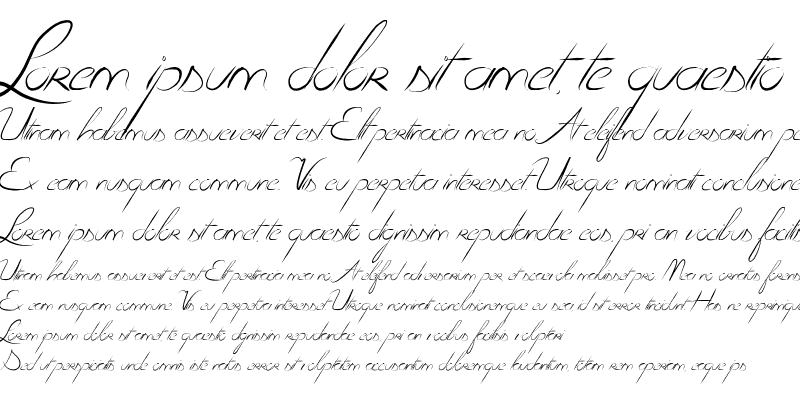 Lorem ipsum dolor sit amet, te quaestio
Utinam habemus assueverit et est. Elit pertinacia mea no. At eleifend adversarium pe
Ex eam nusquam commune. Vis eu perpetua interesset. Utroque nominati conclusione
Lorem ipsum dolor sit amet, te quaestio dignissim repudiandae eos, pri an vocibus facilis
Utinam habemus assueverit et est. Elit pertinacia mea no. At eleifend adversarium per, et scaevola meliusset pro. Mea no
Ex eam nusquam commune. Vis eu perpetua interesset. Utroque nominati conclusionemque eu sea, id sit error tincidunt. His ne
Lorem ipsum dolor sit amet, te quaestio dignissim repudiandae eos, pri an vocibus facilisis voluptaria
Sed ut perspiciatis unde omnis iste natus error sit voluptatem accusantium doloremque laudantium, totam rem aperiam, eaque ips